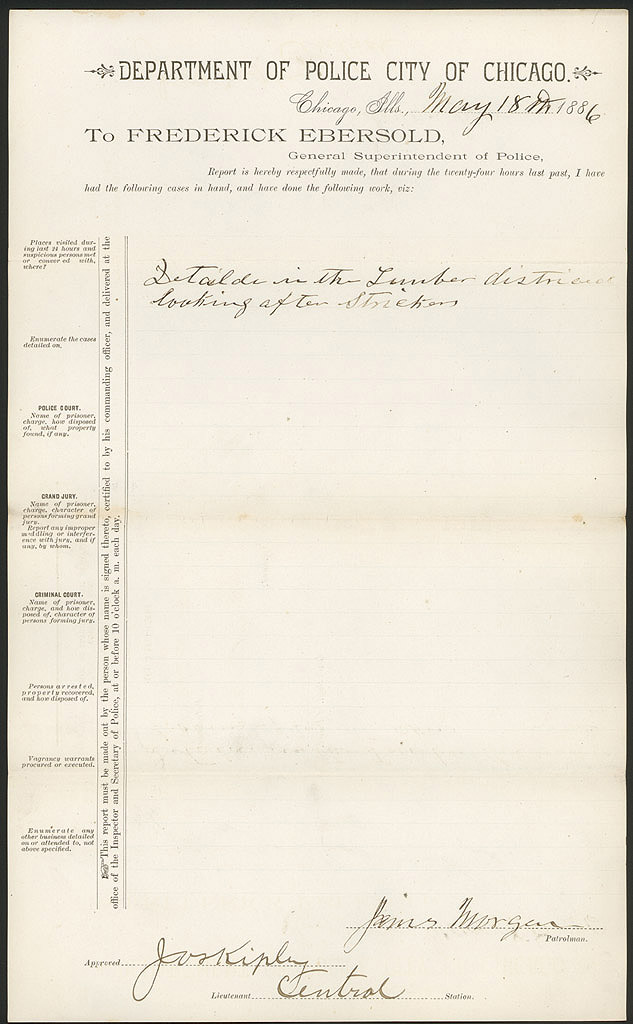 DEPARTMENT OF POLICE CITY OF CHICAGO.
Chicago, Ills., May 18th 1886
To FREDERICK EBERSOLD,
General Superintendent of Police,
Report is hereby respectfully made, that during the twenty-four hours last past, I have
had the following cases in hand, and have done the following work, viz:
Places visited dur-
ing last 24 hours and
suspicious persons met
or conversed with,
where?
Enumerate the cases
detailed on.
POLICE COURT.
Name of prisoner,
charge, how disposed
of, what property
found, if any.
GRAND JURY.
Name of prisoner,
charge, character of
persons forming grand
jury.
Report any improper
meddling or interfer-
ence with jury, and if
any, by whom.
CRIMINAL COURT.
Name of prisoner,
charge, and how dis-
posed of, character of
persons forming jury.
Persons arrested,
property recovered,
and how disposed of.
Vagrancy warrants
procured or executed.
Enumerate any
other business detailed
on or attended to, not
above specified.
This report must be made out by the person whose name is signed thereto, certified to by his commanding officer, and delivered at the
office of the Inspector and Secretary of Police, at or before 10 o'clock a. m. each day.
Detailde in the Lumber district
looking after Strickers
James Morgan
Patrolman.
Approved Jos Kipley
Lieutenant Central Station.